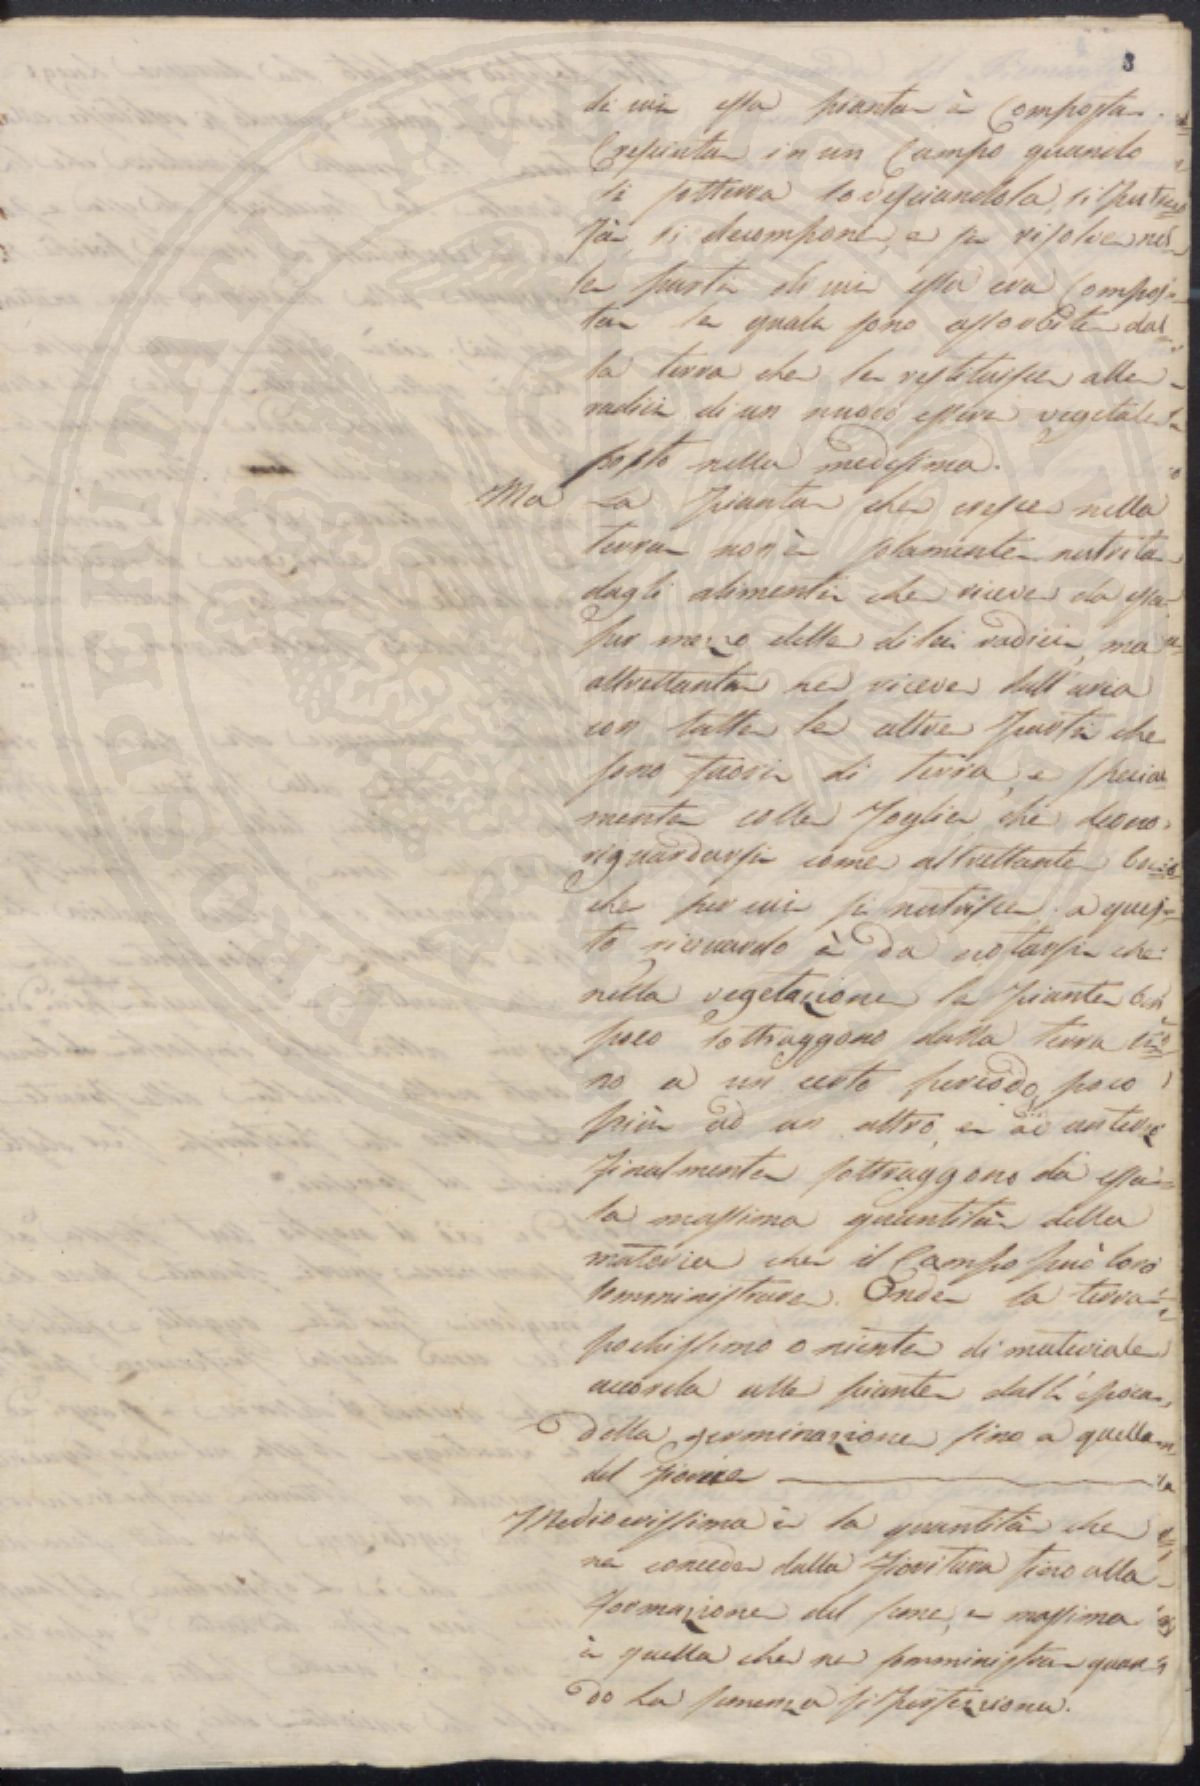 8
di cui essa pianta è composta.
Cresciuta in un Campo quando
si sotterra rovesciandola, si putre
fà, si decompone, e si risolve nel
le parti di cui essa era Compos=
ta le quali sono assorbite dal
la terra che le restituisce alle
radici di un nuovo essere vegetale
posto nella medesima.
Ma La pianta che cresce nella
terra non è solamente nutrita
dagli alimenti che riceve da essa
per mezzo delle di lei radici, ma
altrettanta ne riceve dall'aria
con tutte le altre parti che
sono fuori di terra, e special
mente colle foglie che deono
riguardarsi come altrettante bocche
che per cui si nutrisce. a ques=
to riguardo è da notarsi che
nella vegetazione le piante ben
poco sottraggono dalla terra fi
no a un certo periodo, poco
più ad un altro, e
finalmente sottraggono da essa
la massima quantità della
materia che il Campo può loro
somministrare. Onde la terra
pochissimo o niente di materiale
accorda alle piante dall'epoca
della germinazione fino a quella
del fiorire
Mediocrissima è la quantità che
ne concede dalla fioritura fino alla
formazione del seme, e massima
è quella che ne somministra quan
do la semenza si perfeziona.
PROSPERITATI PUBLICAE